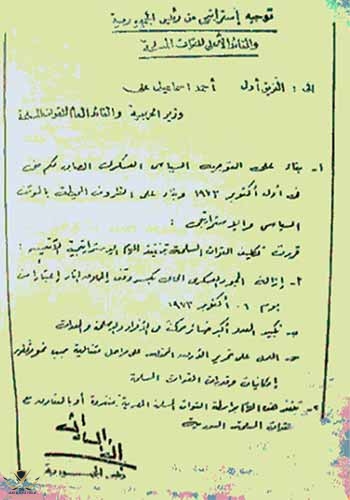 توجيه إستراتيجى من رئيس الجمهورية
والقائد الأعلى للقوات المسلحة
الى : الفريق أول أحمد اسماعيل على
وزير الحربية والقائد العام للقوات المسلحة
١- بناء على التوجيه السياسى العسكرى الصادر لكم منى
فى أول أكتوبر ١٩٧٣ وبناء على الظروف المحيطة بالموقف
السياسى والاستراتيجى :
قررت تكليف القوات المسلحة بتنفيذ المهام الاستراتيجية الآتية :
أ- إزالة الجمود العسكرى الحالى بكسر وقف إطلاق النار إعتبارا من
يوم ٦ أكتوبر ١٩٧٣
ب- تكبيد العدو أكبر خسائر ممكنة من الأفراد والأسلحة والمعدات
ج- العمل على تحرير الأرض المحتلة على مراحل متتالية حسب نمو وتطور
إمكانيات وقدرات القوات المسلحة
٢- تنفذ هذه المهام بواسطة القوات المسلحة المصرية منفردة أو بالتعاون مع
القوات المسلحة السورية
رئيس الجمهورية